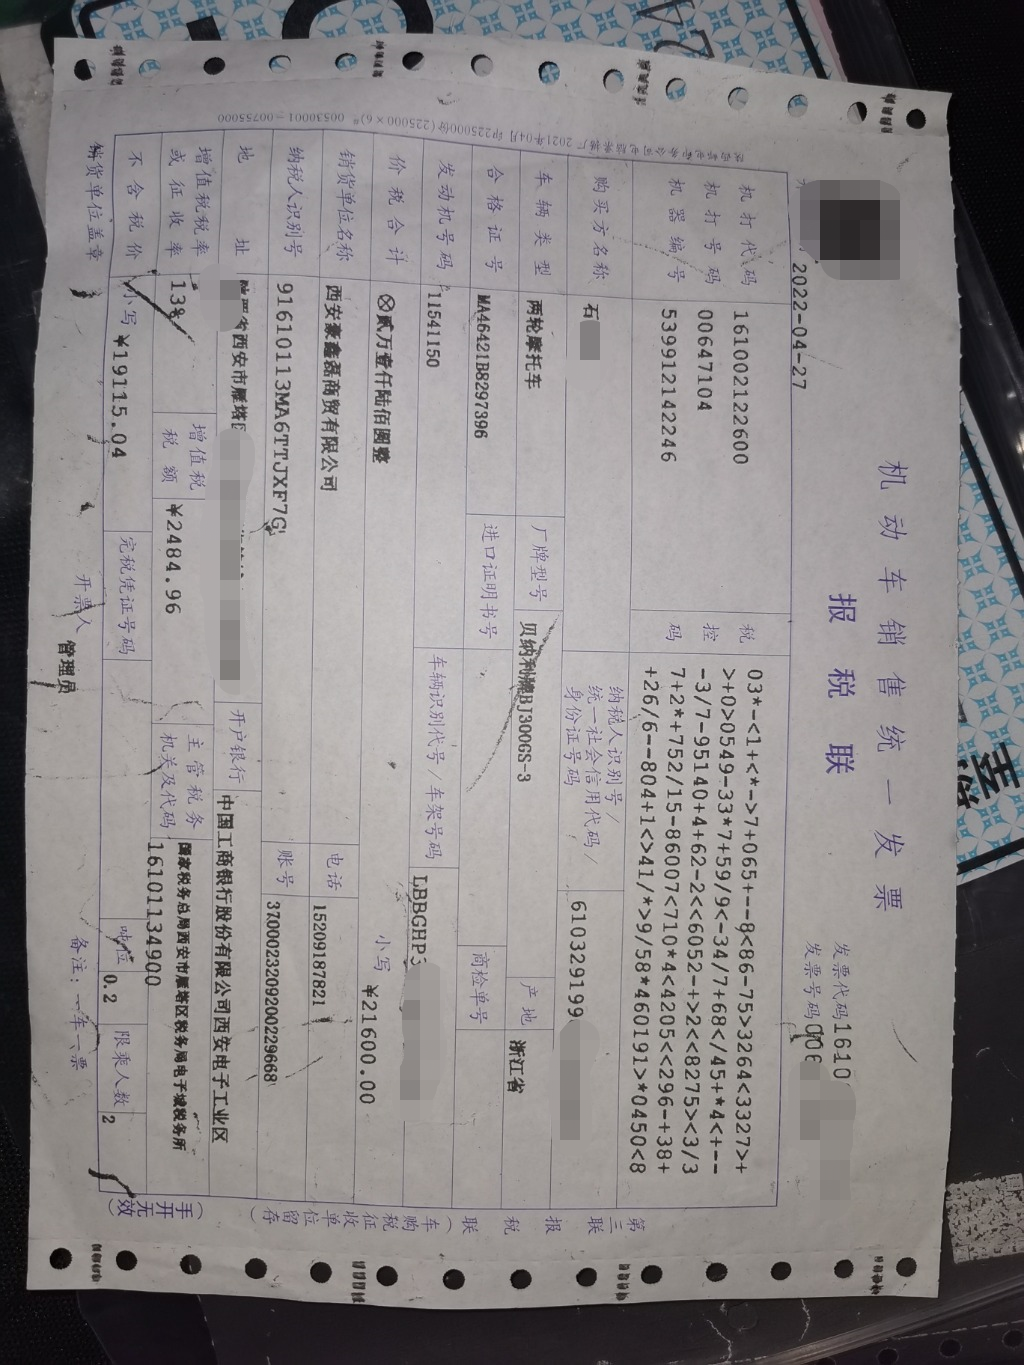 陕西邮电印务公司电脑票据厂 2021年04月印225000份(225000×6)* 00530001-00755000
机动车销售统一发票
报税联
发票代码1610
发票号码006
2022-04-27
机打代码 161002122600
机打号码 00647104
机器编号 539912142246
税控码
03*-<1+<*->7+065+--8<86-75>3264<3327>+
>+0>0549-33*7+59/9<-34/7+68</45+*4<+--
-3/7-95140+4+62-2<<6052-+>2<<8275><3/3
7+2*+752/15-86007<710*4<4205<<296-+38+
+26/6--804+1<>41/*>9/58*460191>*0450<8
购买方名称 石
纳税人识别号/统一社会信用代码/身份证号码 610329199
车辆类型 两轮摩托车
厂牌型号 贝纳利牌BJ300GS-3
产地 浙江省
合格证号 MA46421B8297396
进口证明书号
商检单号
发动机号码 11541150
车辆识别代号/车架号码 LBBGHP3
价税合计 ⊗贰万壹仟陆佰圆整
小写 ¥21600.00
销货单位名称 西安豪鑫磊商贸有限公司
电话 15209187821
纳税人识别号 91610113MA6TTJXF7G
账号 3700023209200229668
地址 陕西省西安市雁塔区
开户银行 中国工商银行股份有限公司西安电子工业区
增值税税率或征收率 13%
增值税税额 ¥2484.96
主管税务机关及代码 国家税务总局西安市雁塔区税务局电子城税务所
16101134900
不含税价 小写 ¥19115.04
完税凭证号码
吨位 0.2
限乘人数 2
销货单位盖章
开票人 管理员
备注:一车一票
第三联 报税联(车购税征收单位留存)
(手开无效)